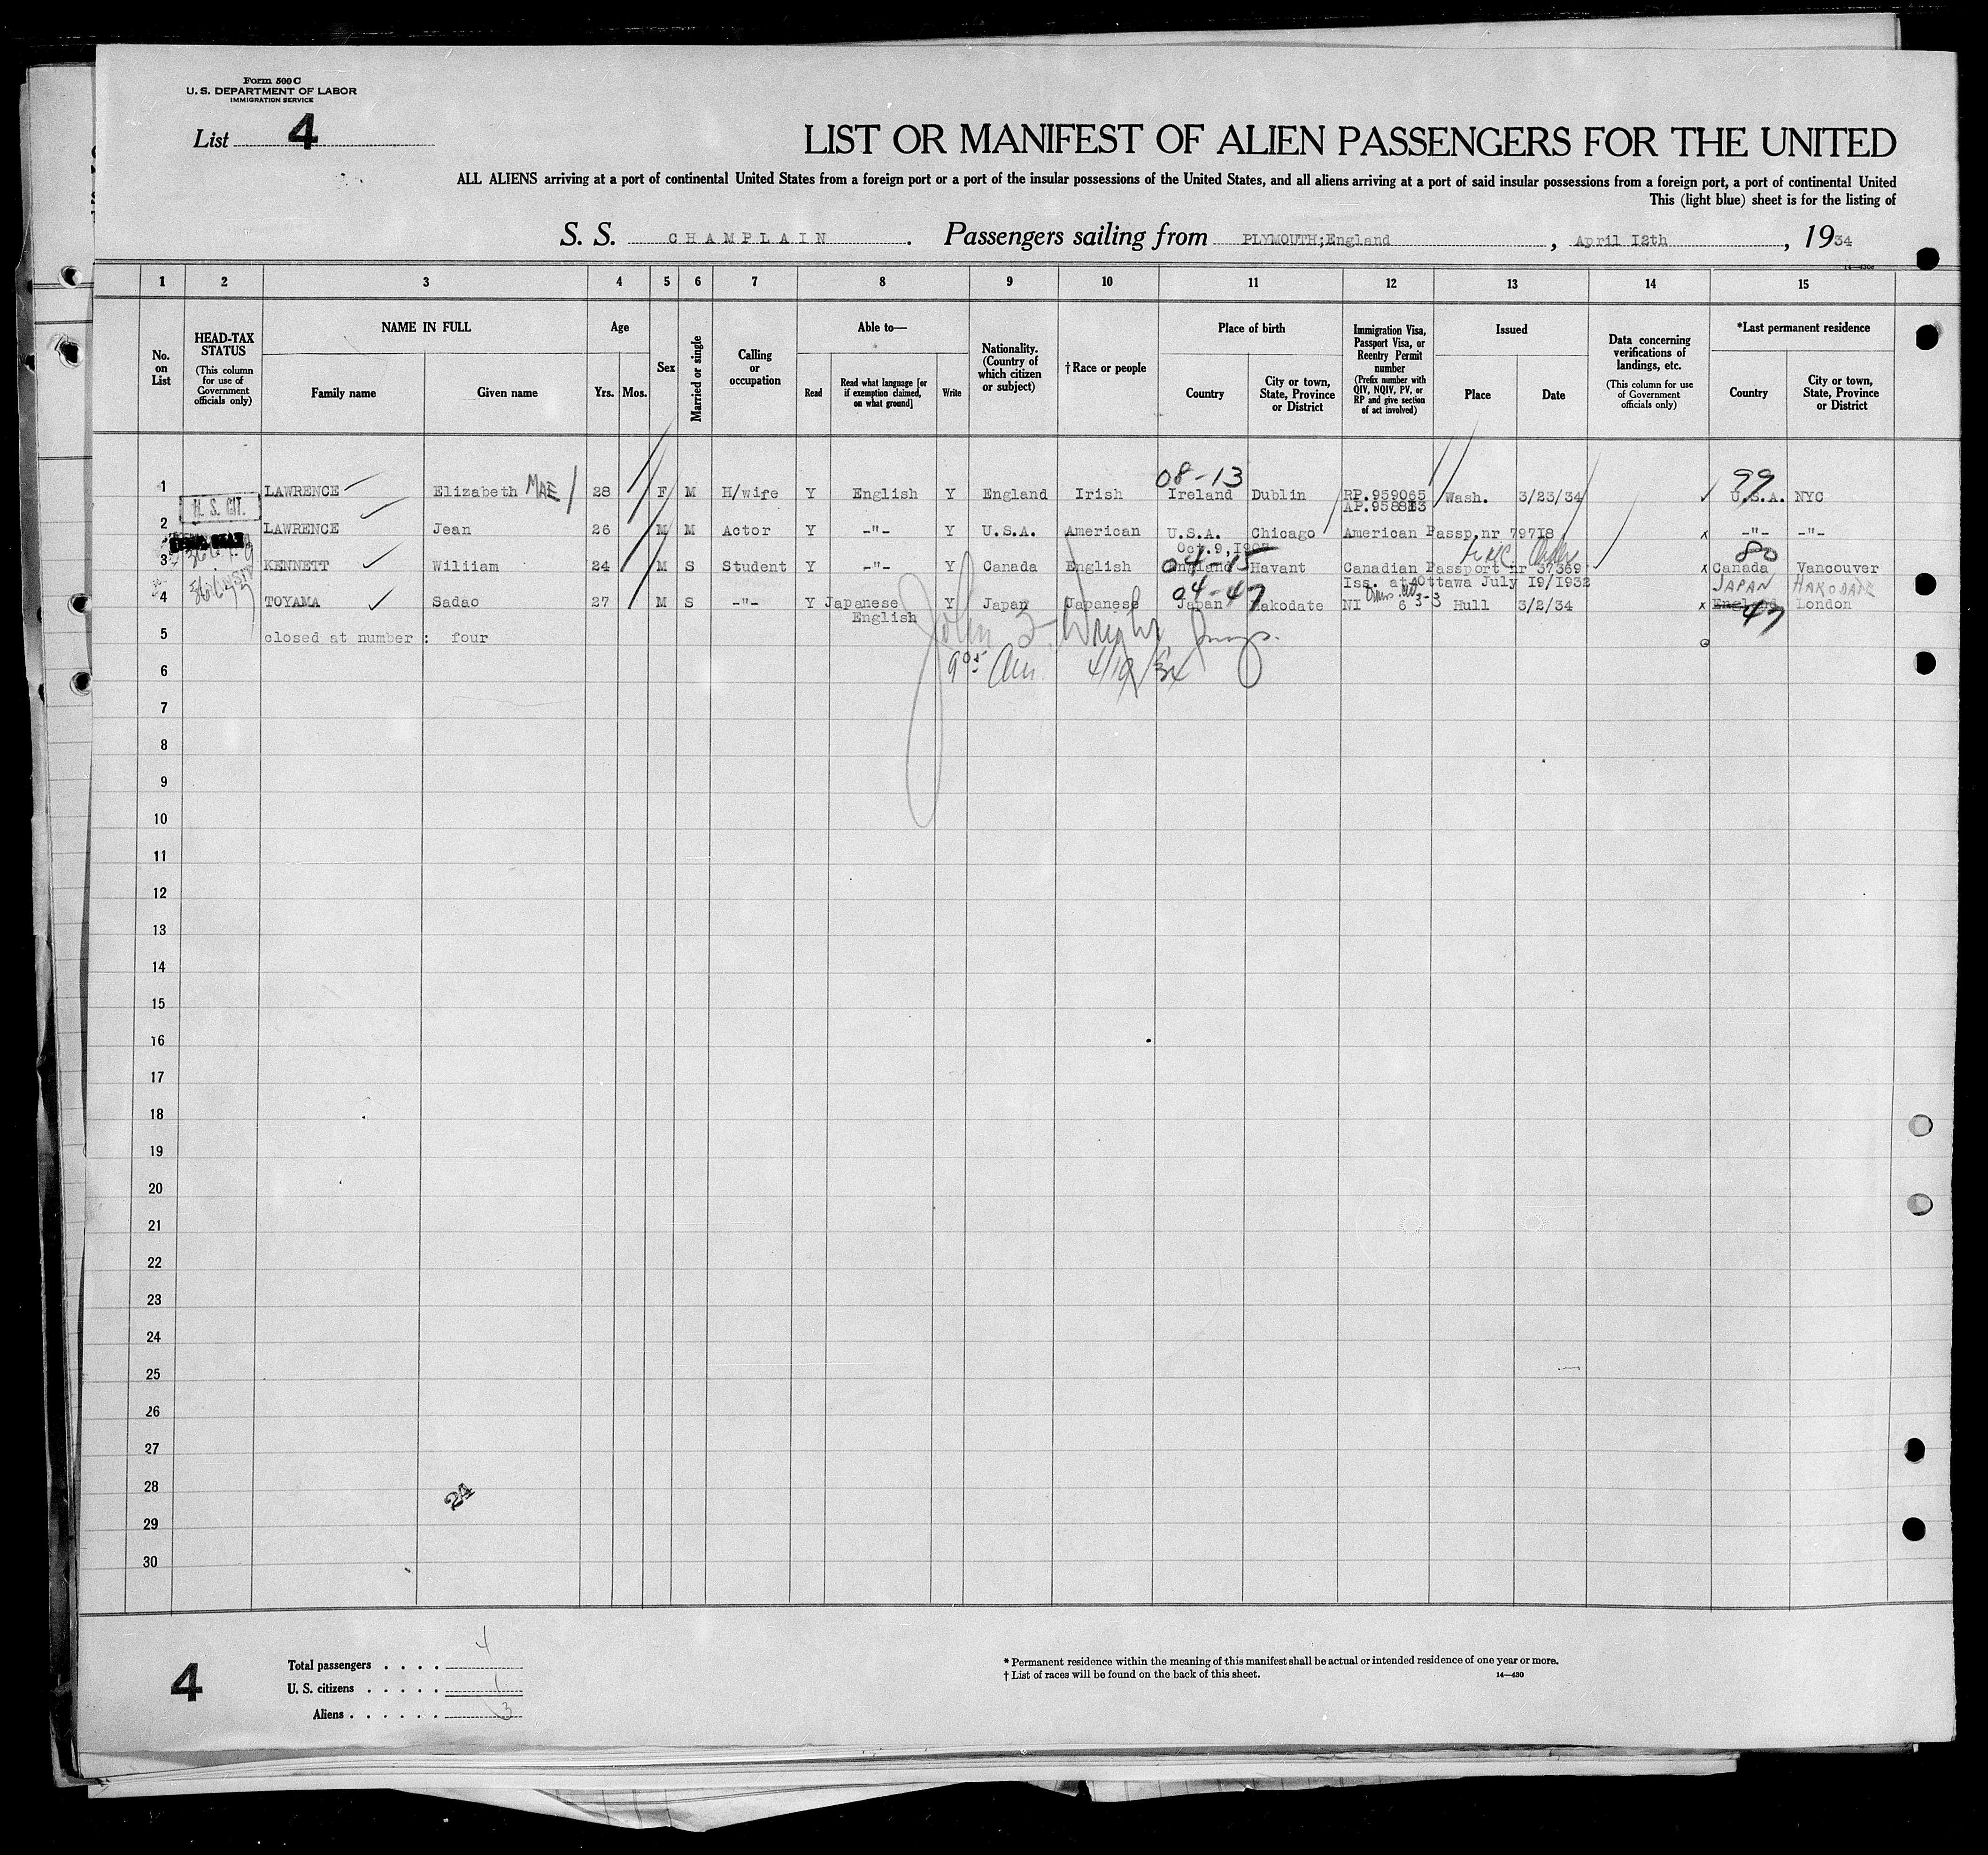 Form 500 C
U. S. DEPARTMENT OF LABOR
IMMIGRATION SERVICE
List 4
LIST OR MANIFEST OF ALIEN PASSENGERS FOR THE UNITED
ALL ALIENS arriving at a port of continental United States from a foreign port or a port of the insular possessions of the United States, and all aliens arriving at a port of said insular possessions from a foreign port, a port of continental United
This (light blue) sheet is for the listing of
S. S. CHAMPLAIN. Passengers sailing from PLYMOUTH;England, April I2th, 1934
1 2 3 4 5 6 7 8 9 10 11 12 13 14 15
No. on List
HEAD-TAX STATUS
(This column for use of Government officials only)
NAME IN FULL
Family name
Given name
Age
Yrs. Mos.
Sex
Married or single
Calling or occupation
Able to—
Read
Read what language [or if exemption claimed, on what ground]
Write
Nationality. (Country of which citizen or subject)
†Race or people
Place of birth
Country
City or town, State, Province or District
Immigration Visa, Passport Visa, or Reentry Permit number
(Prefix number with QIV, NQIV, PV, or RP and give section of act involved)
Issued
Place
Date
Data concerning verifications of landings, etc.
(This column for use of Government officials only)
*Last permanent residence
Country
City or town, State, Province or District
08-13 99
1 LAWRENCE Elizabeth MAE 28 F M H/wife Y English Y England Irish Ireland Dublin RP.959065 Wash. 3/23/34 U.S.A. NYC
U. S. CIT.
2 LAWRENCE Jean 26 M M Actor Y -"- Y U.S.A. American U.S.A. Chicago American Passp.nr 797I8 x -"- -"-
04-15 80
3 KENNETT Wiliiam 24 M S Student Y -"- Y Canada English England Havant Canadian Passport nr 37369 x Canada Vancouver
Iss. at Ottawa July I9/I932 JAPAN HAKODATE
04-47
4 TOYAMA Sadao 27 M S -"- Y Japanese Y Japan Japanese Japan Hakodate NI 6 3-3 Hull 3/2/34 x England London
English 47
5 closed at number : four
John Wright
9 05 Am 4/19/34
6
7
8
9
10
11
12
13
14
15
16
17
18
19
20
21
22
23
24
25
26
27
28
24
29
30
4
Total passengers . . . . 4
U. S. citizens . . . . . 1
Aliens . . . . . . 3
* Permanent residence within the meaning of this manifest shall be actual or intended residence of one year or more.
† List of races will be found on the back of this sheet. 14—430